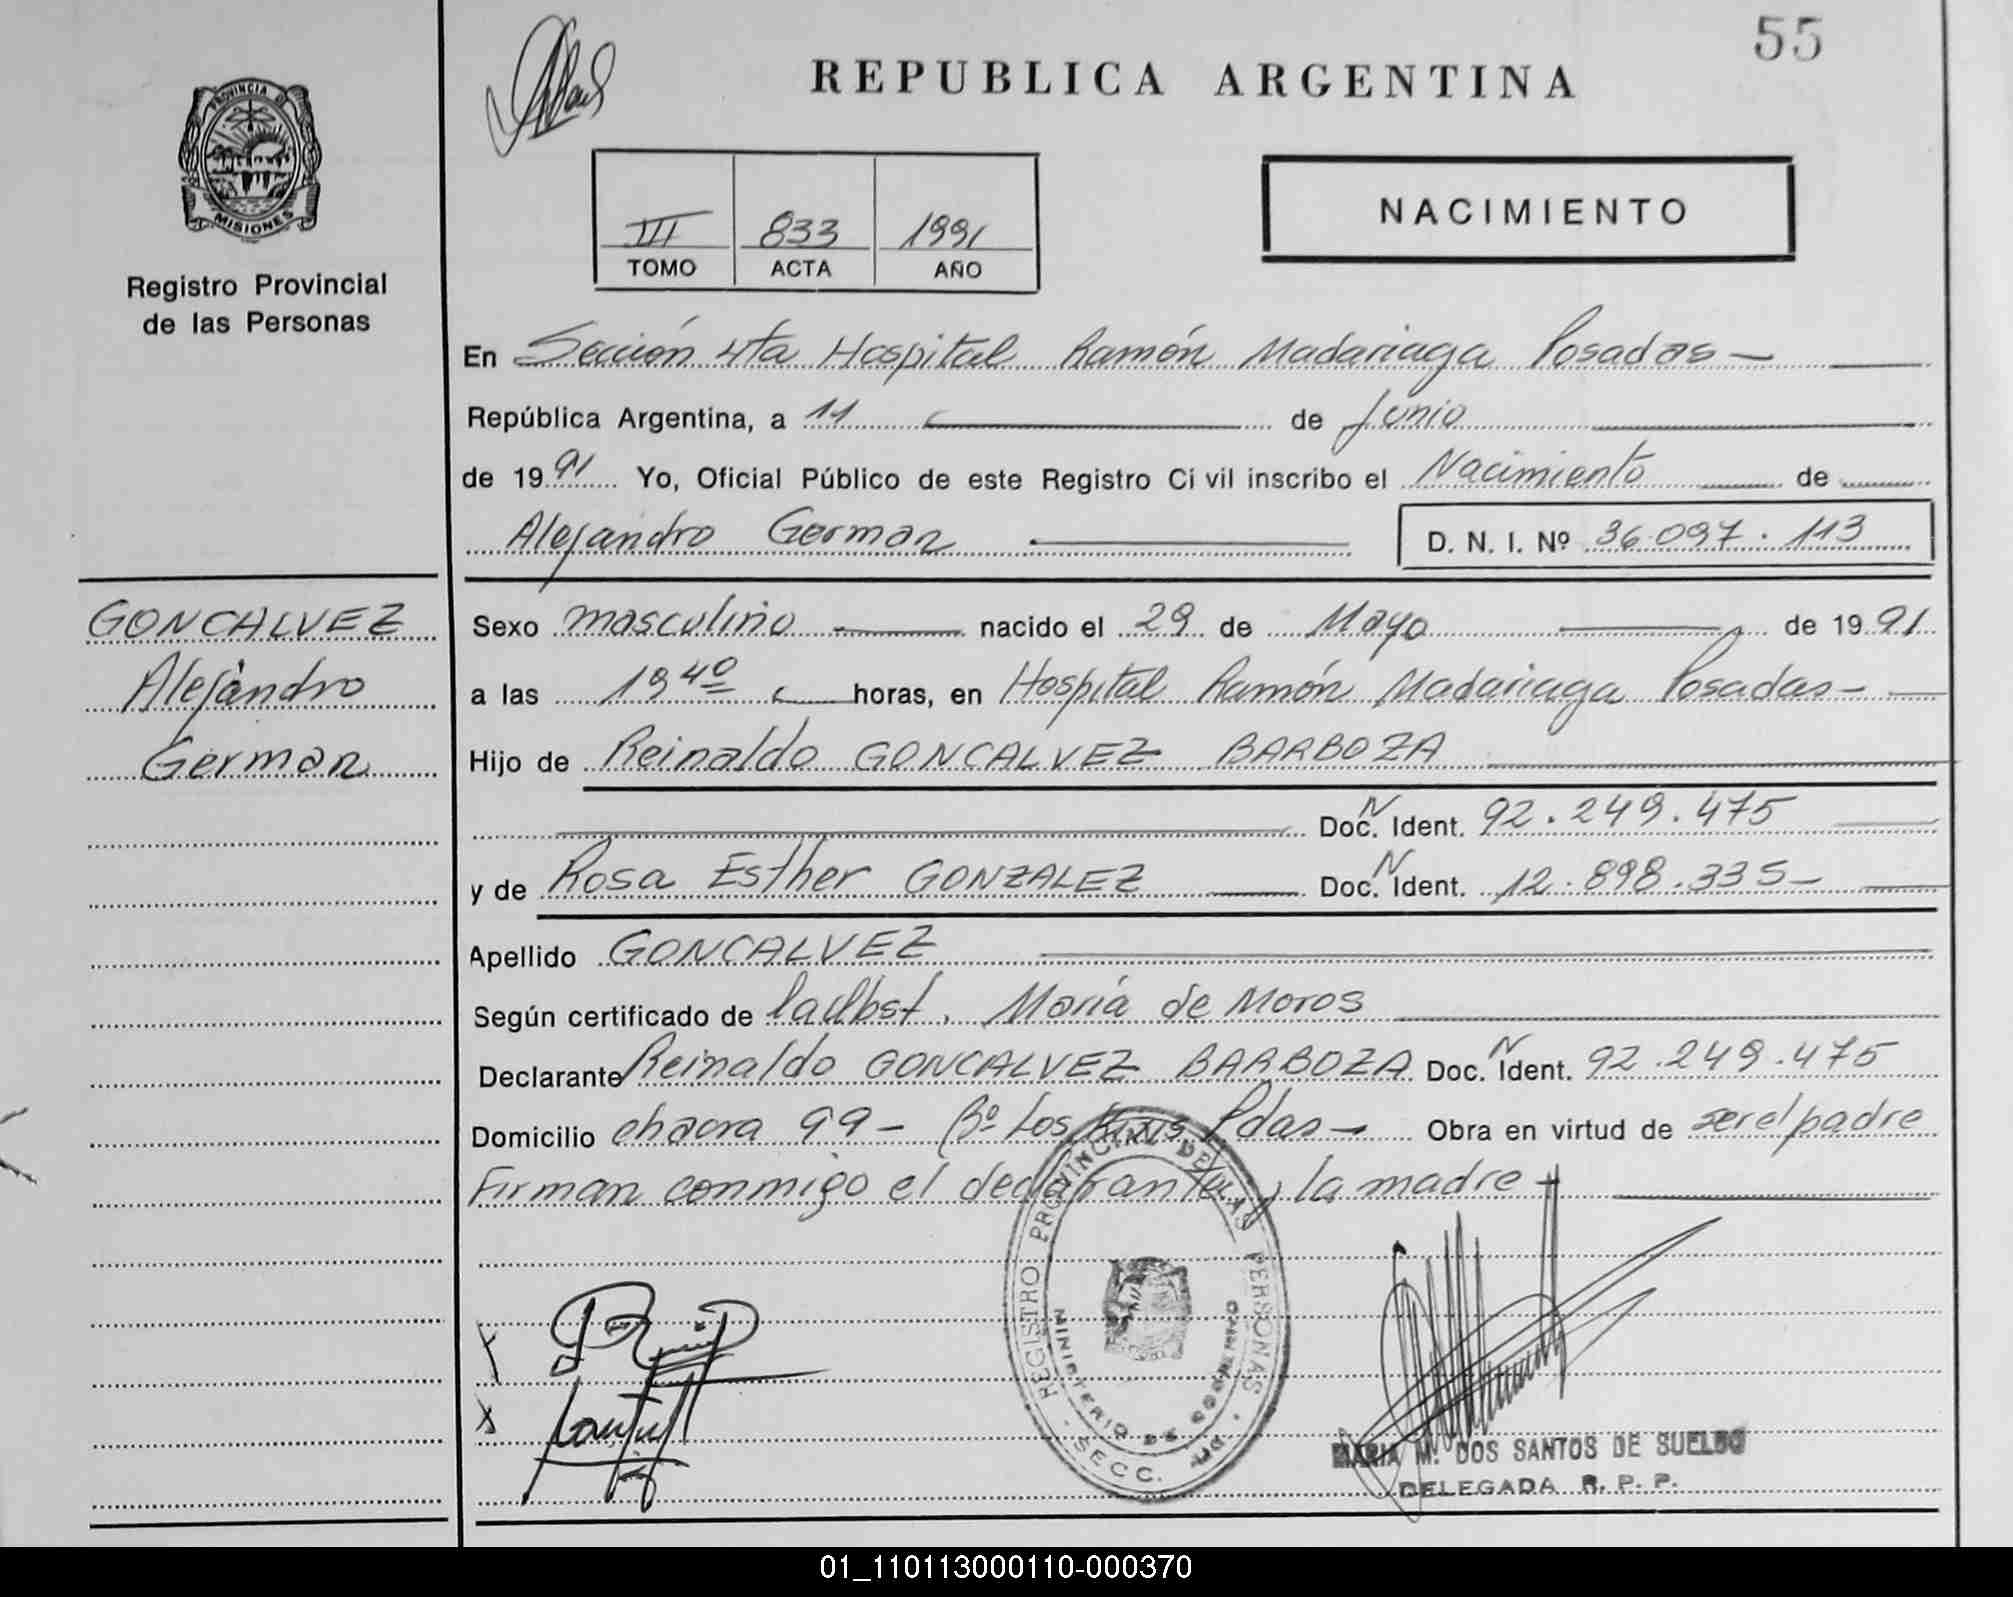 55
REPUBLICA ARGENTINA
PROVINCIA DE
MISIONES
Registro Provincial
de las Personas
III 833 1991
TOMO ACTA AÑO
NACIMIENTO
En Sección 4ta Hospital Ramón Madariaga Posadas —
República Argentina, a 11 de Junio
de 1991 Yo, Oficial Público de este Registro Ci vil inscribo el Nacimiento de
Alejandro German D. N. I. Nº 36.097.113
GONCALVEZ
Alejandro
German
Sexo masculino nacido el 29 de Mayo de 1991
a las 19 40 horas, en Hospital Ramón Madariaga Posadas —
Hijo de Reinaldo GONCALVEZ BARBOZA
Doc. N Ident. 92.249.475
y de Rosa Esther GONZALEZ Doc. N Ident. 12.898.335 —
Apellido GONCALVEZ
Según certificado de la Obst. María de Moros
Declarante Reinaldo GONCALVEZ BARBOZA Doc. N Ident. 92.249.475
Domicilio chacra 99 — Bº Los Pdas — Obra en virtud de ser el padre
Firman conmigo el declarante y la madre —
REGISTRO PROVINCIAL DE LAS PERSONAS
MINISTERIO DE GOBIERNO
SECC.
MARIA M. DOS SANTOS DE SUELDO
DELEGADA R. P. P.
01_110113000110-000370